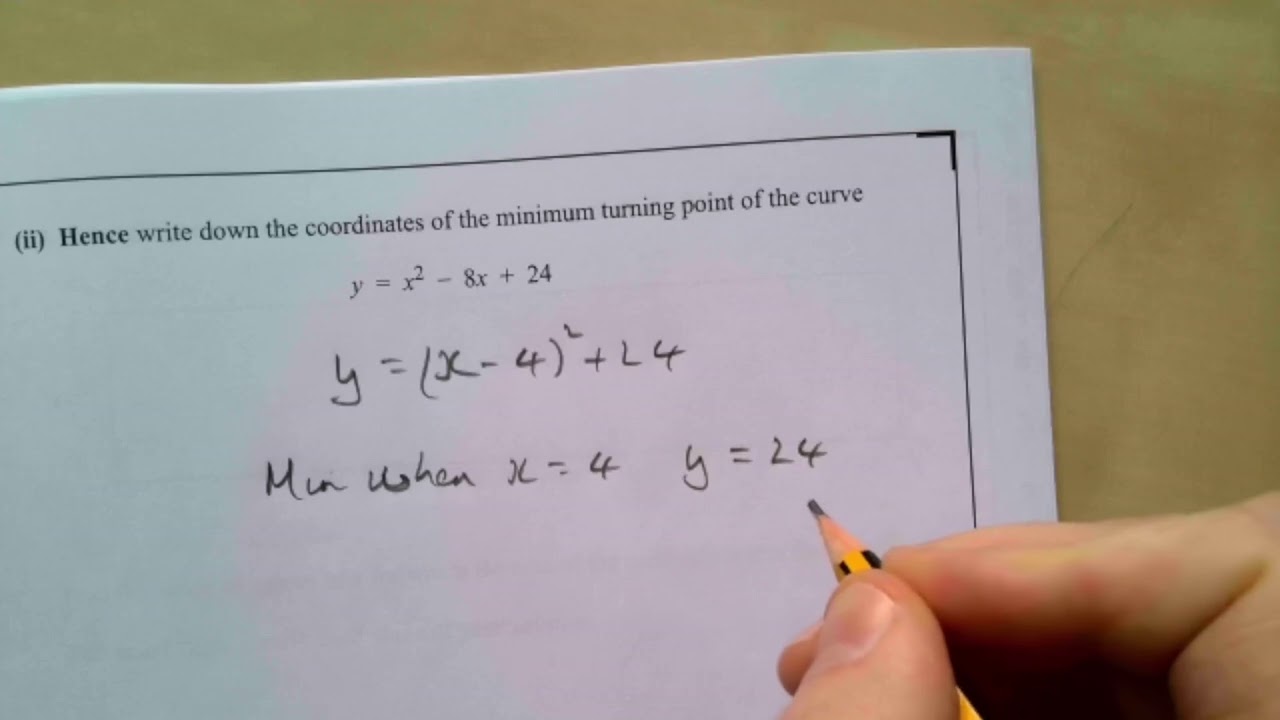 (ii) Hence write down the coordinates of the minimum turning point of the curve
y = x² − 8x + 24
y = (x − 4)² + 24
Min when x = 4 y = 24